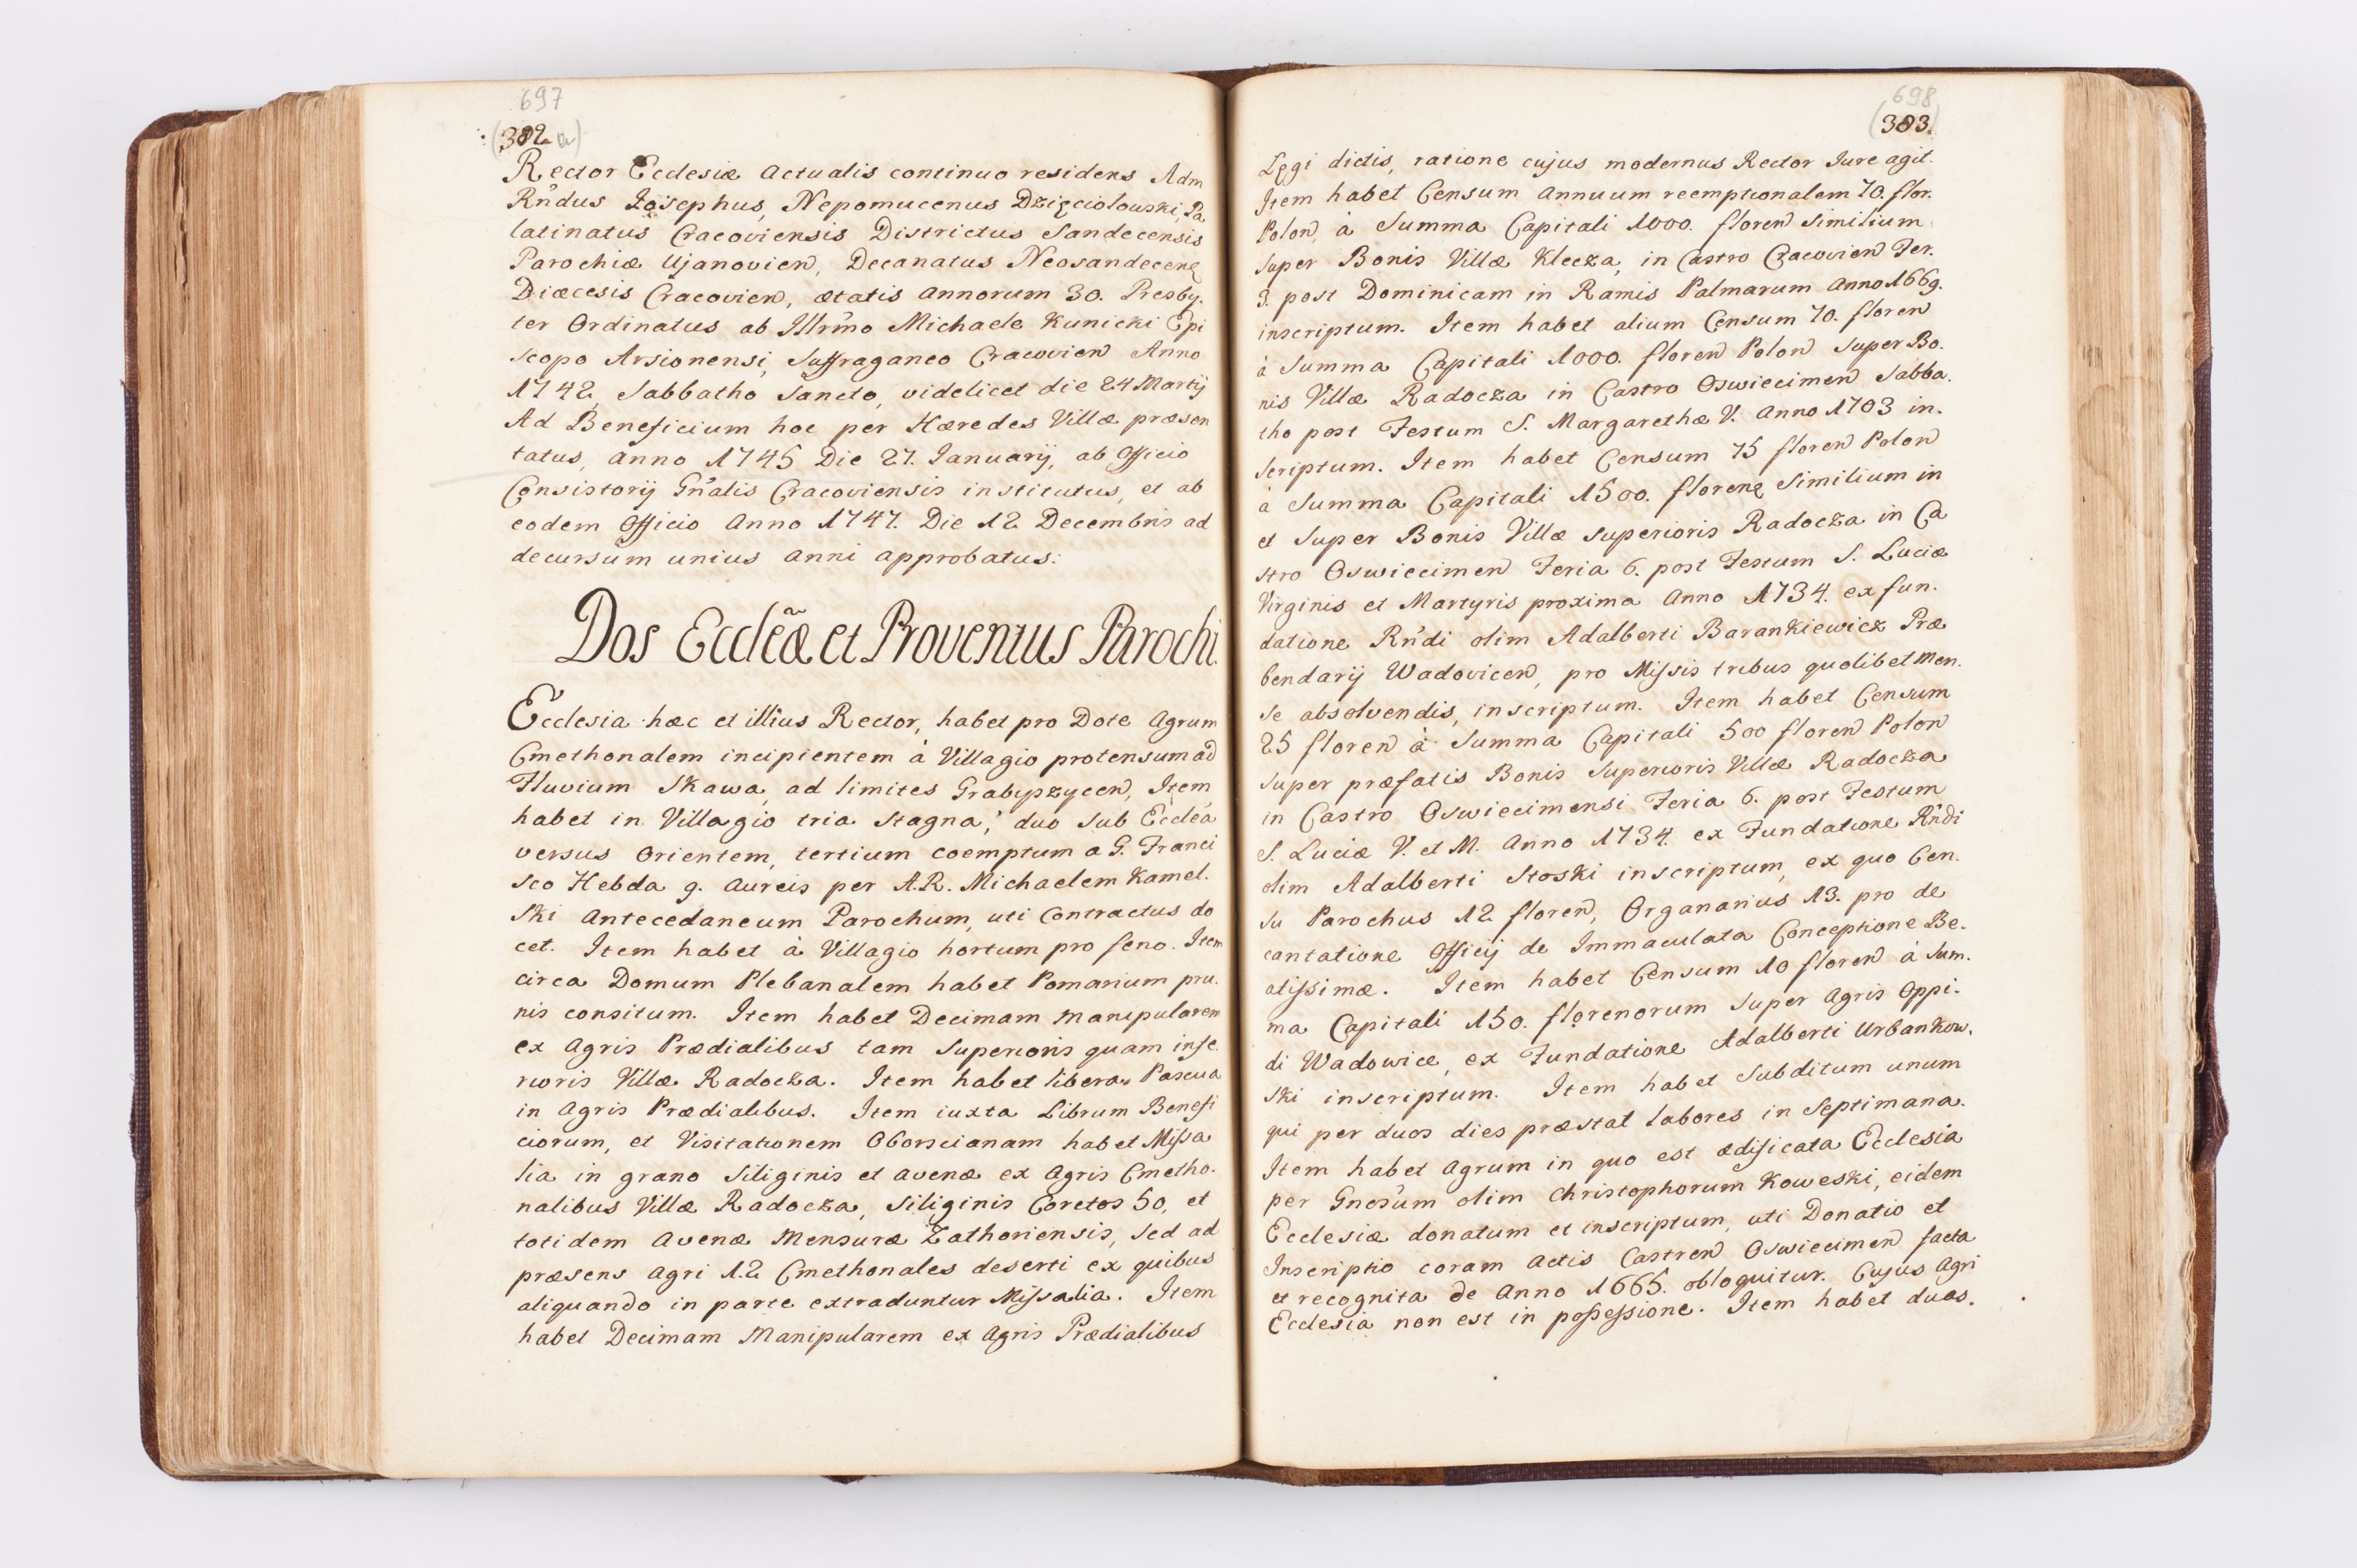 697
(382 a)
Rector Ecclesiæ Actualis continuo residens Adm
Rńdus Josephus, Nepomucenus Dzięciołowski, Pa
latinatus Cracoviensis Districtus Sandecensis
Parochiæ Ujanovien, Decanatus Neosandecen
Diæcesis Cracovien, ætatis annorum 30. Presby.
ter Ordinatus ab Illrm̃o Michaele Kunicki Epi
scopo Arsionensi, Suffraganeo Cracovien Anno
1742, Sabbatho Sancto, videlicet die 24 Martij
Ad Beneficium hoc per Hæredes Villæ præsen
tatus, anno 1745 Die 27. Januarij, ab Officio
Consistorij Gnalis Cracoviensis institutus, et ab
eodem Officio Anno 1747. Die 12 Decembris ad
decursum unius anni approbatus:
Dos Eccleæ̃ et Proventus Parochi.
Ecclesia hæc et illius Rector, habet pro Dote Agrum
Cmethonalem incipientem à Villagio protensum ad
Fluvium Skawa, ad limites Grabyszycen, Item
habet in Villagio tria Stagna, duo sub Ecclea
versus Orientem, tertium coemptum a G. Franci
sco Hebda 9. Aureis per A.R. Michaelem Kamel.
ski Antecedaneum Parochum, uti Contractus do
cet. Item habet à Villagio hortum pro feno. Item
circa Domum Plebanalem habet Pomarium pru.
nis consitum. Item habet Decimam Manipularem
ex Agris Prædialibus tam Superioris quam infe
rioris Villæ Radocza. Item habet libera Pascua
in Agris Prædialibus. Item iuxta Librum Benefi
ciorum, et Visitationem Oborscianam habet Missa
lia in grano Siliginis et avenæ ex Agris Cmetho.
nalibus Villæ Radocza, Siliginis Coretos 50, et
totidem Avenæ Mensuræ Zathoriensis, sed ad
præsens Agri 12 Cmethonales deserti ex quibus
aliquando in parte extraduntur Missalia. Item
habet Decimam Manipularem ex Agris Prædialibus
698
(383.)
Legi dictis, ratione cujus modernus Rector Jure agit.
Item habet Censum Annuum reemptionalem 70. flor.
Polon, à Summa Capitali 1000. floren Similium
super Bonis Villæ Klecza, in Castro Cracovien Fer.
3. post Dominicam in Ramis Palmarum Anno 1669.
inscriptum. Item habet alium Censum 70. floren
à Summa Capitali 1000. floren Polon Super Bo.
nis Villæ Radocza in Castro Oswiecimen Sabba.
tho post Festum S. Margarethæ V. Anno 1703 in.
scriptum. Item habet Censum 75 floren Polon
à Summa Capitali 1500. floren Similium in
et Super Bonis Villæ Superioris Radocza in Ca
stro Oswiecimen Feria 6. post Festum S. Luciæ
Virginis et Martyris proxima Anno 1734. ex fun.
datione Rńdi olim Adalberti Barankiewicz Præ
bendarij Wadovicen, pro Missis tribus quolibet Men.
se absolvendis, inscriptum. Item habet Censum
25 floren à Summa Capitali 500 floren Polon
super præfatis Bonis Superioris Villæ Radocza
in Castro Oswiecimensi Feria 6. post Festum
S. Luciæ V. et M. Anno 1734. ex Fundatione Rńdi
olim Adalberti Stoski inscriptum, ex quo Cen.
su Parochus 12 floren, Organarius 13. pro de
cantatione Officij de Immaculata Conceptione Be.
atissimæ. Item habet Censum 10 floren à Sum.
ma Capitali 150. florenorum Super Agris Oppi.
di Wadowice, ex Fundatione Adalberti Urbankow.
ski inscriptum. Item habet Subditum unum
qui per duos dies præstat labores in Septimana.
Item habet Agrum in quo est ædificata Ecclesia
per Gnosum olim Christophorum Koweski, eidem
Ecclesiæ donatum et inscriptum, uti Donatio et
Inscriptio coram Actis Castren Oswiecimen facta
et recognita de Anno 1665. obloquitur. Cujus Agri
Ecclesia non est in possessione. Item habet duos.